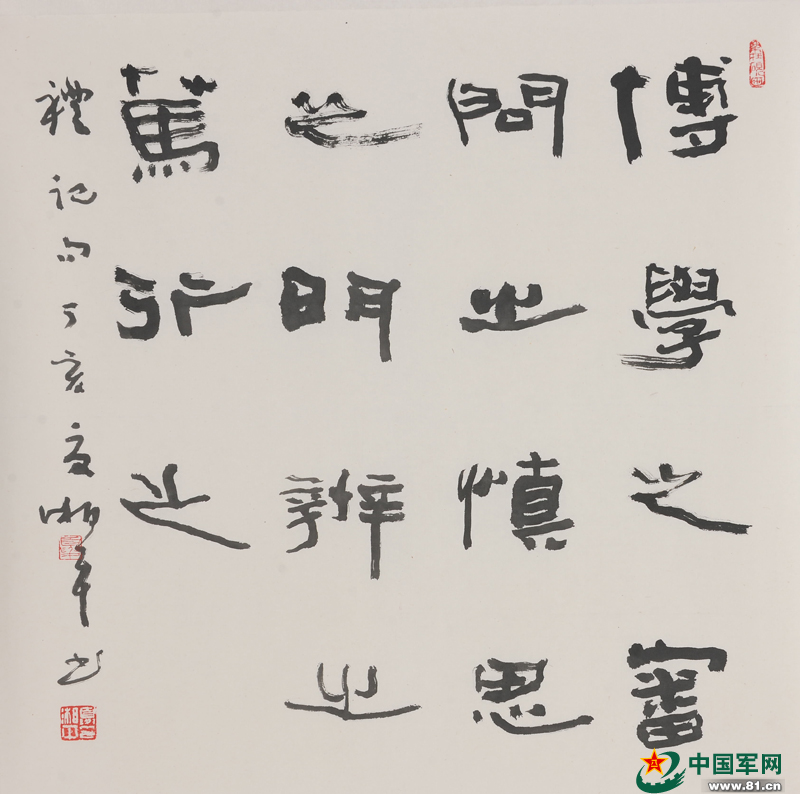 博學之審
問之慎思
之明辨之
篤行之
禮記句丁亥夏湘平书
中国军网
www.81.cn